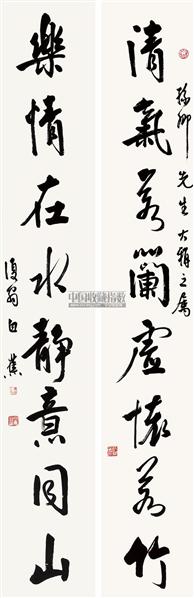 先生大雅之屬
清氣若蘭虛懷若竹
樂情在水靜意同山
復翁白蕉
中国收藏指数